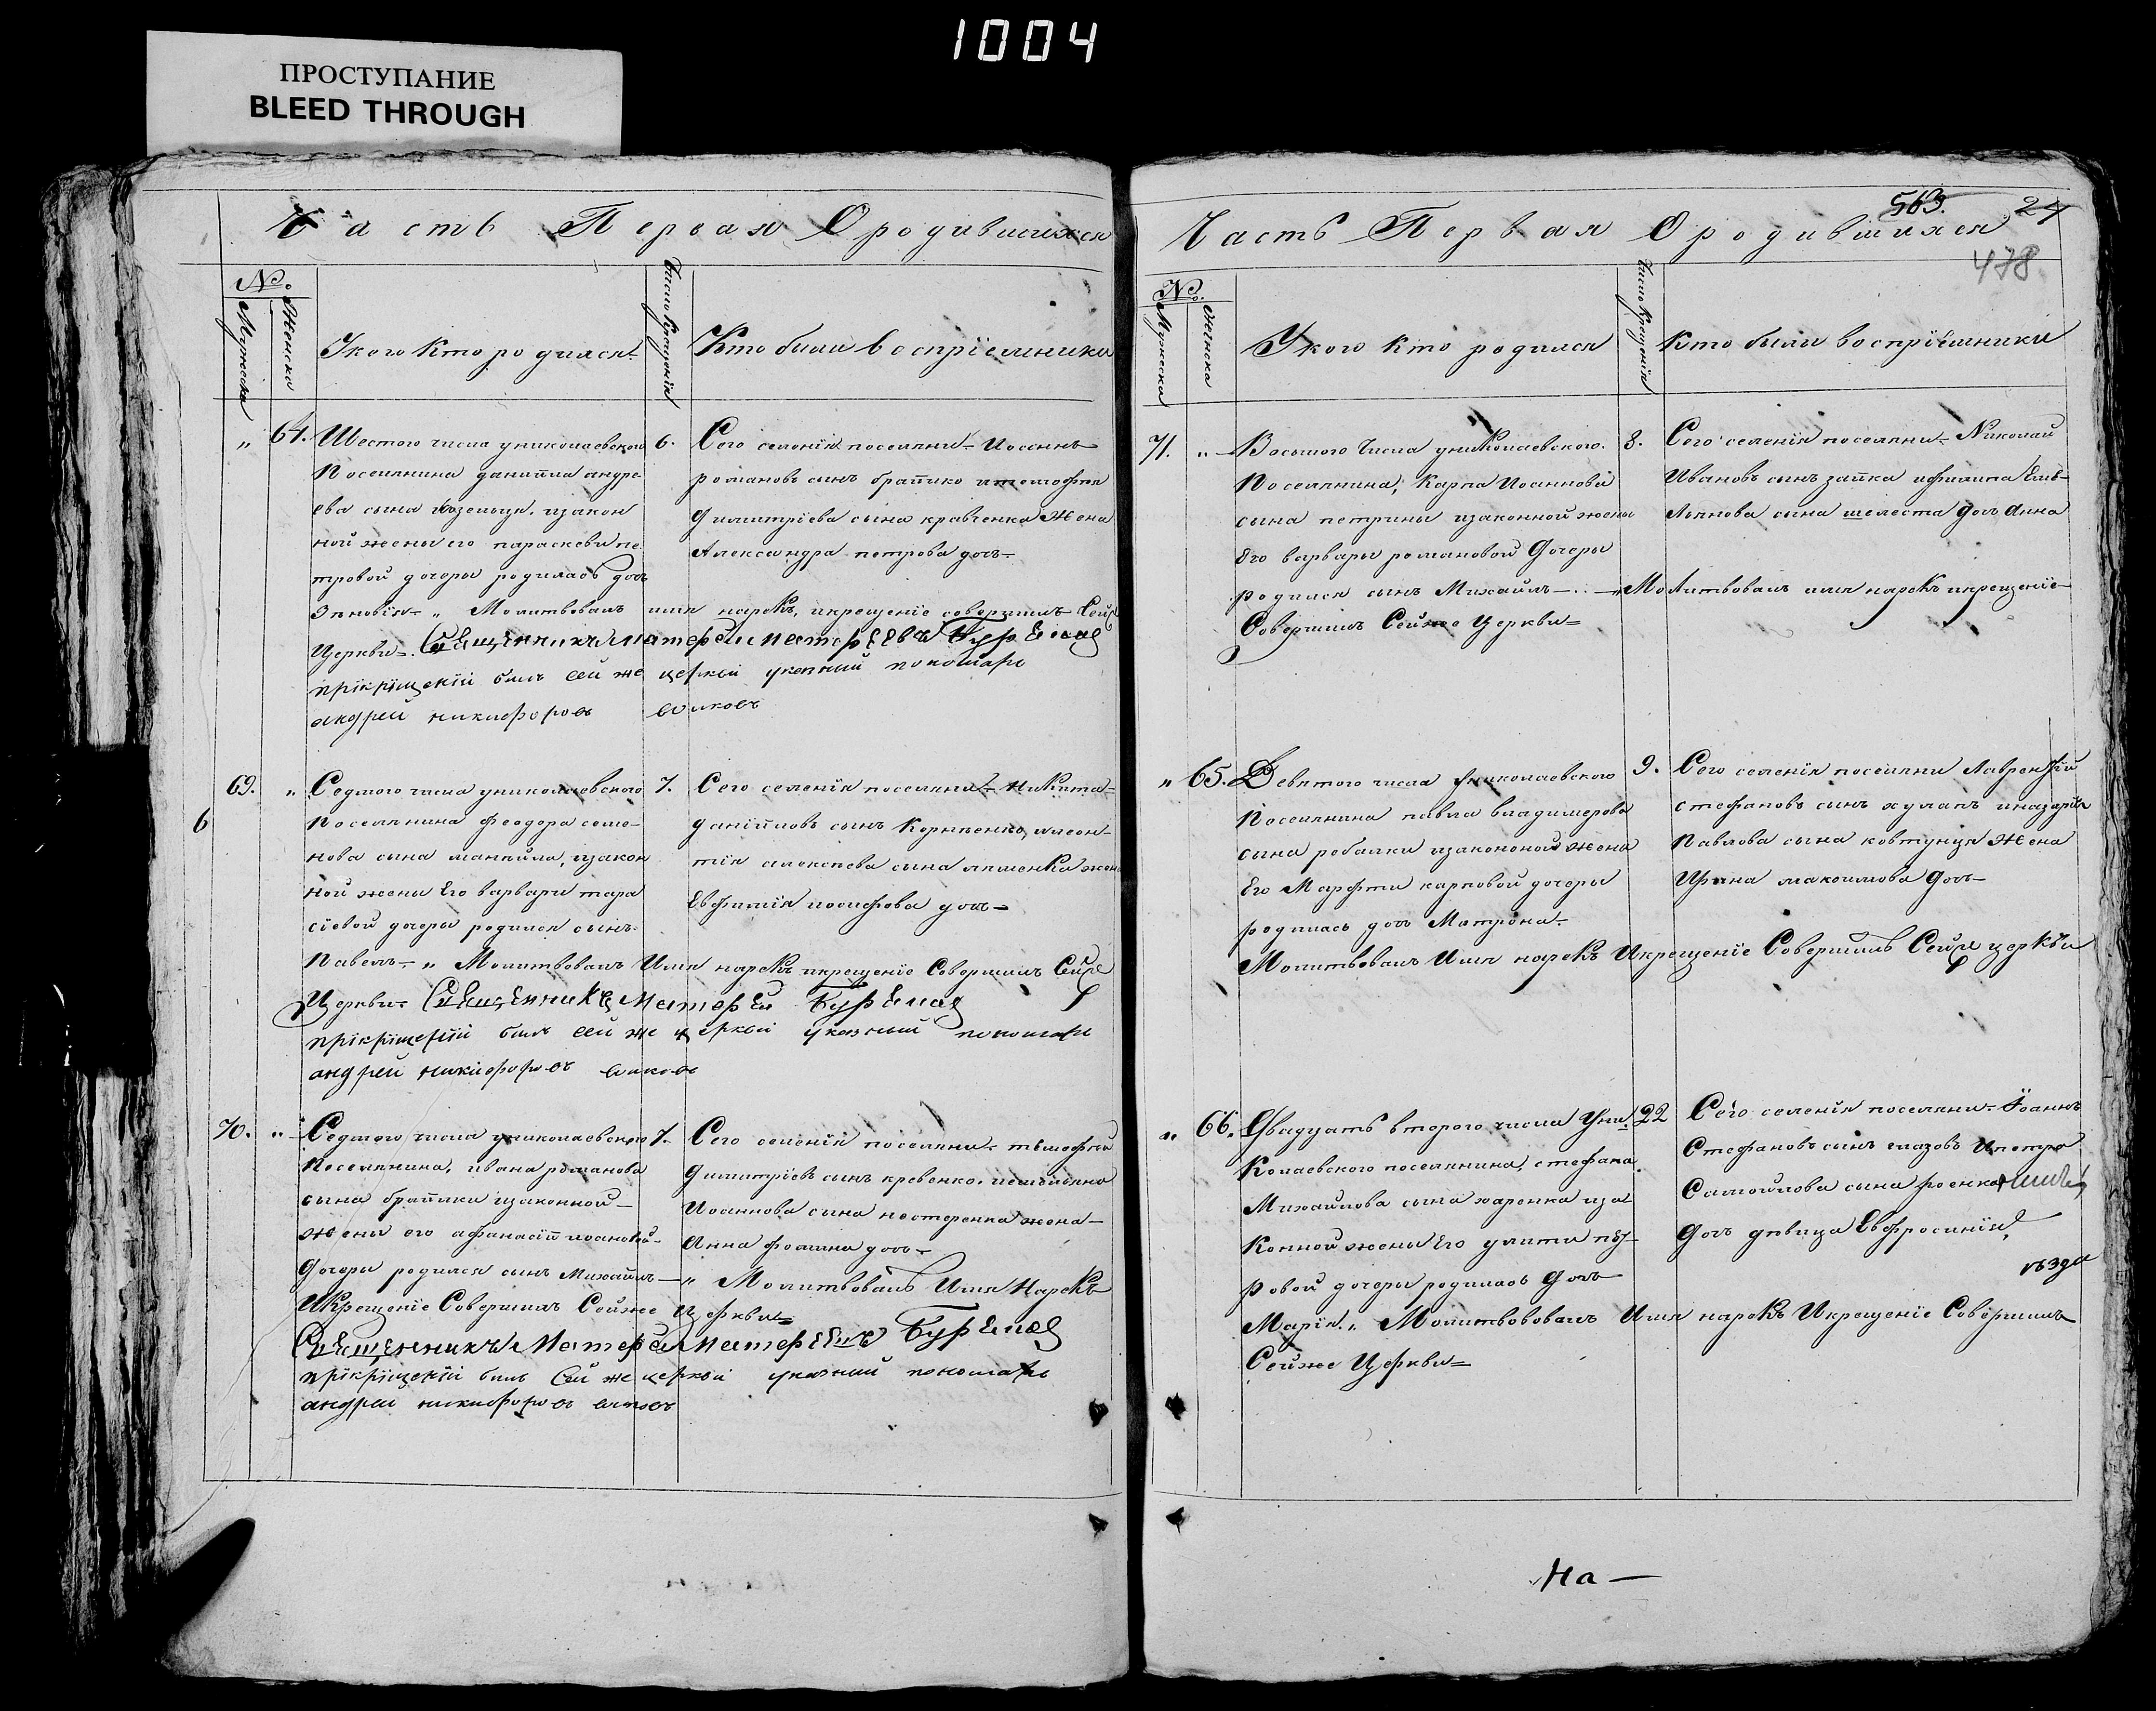 1004
ПРОСТУПАНИЕ
BLEED THROUGH
Часть Первая О родившихся
№
Мужеска
Женска
У кого кто родился
Число крещенія
Кто были воспріемники
" 64. Шестого числа у николаевского
поселянина даниила андре
ева сына козельця, изакон
ной жены его параскеви пе
тровой дочеры родилась дочь
Зиновія " Молитвовалъ имя нарекъ, икрещеніе совершилъ Сей же
Церкви Священникъ
прікріщеніи билъ сей же церкви указный пономарь
андрей никифоровъ
6. Сего селенія поселяни Иоаннъ
романовъ сынъ братико итимофея
димитріева сына кравченка жена
Александра петрова дочь
69. " Седмого числа у николаевского
6
поселянина феодора семе
нова сына изакон
ной жены Его варвари тара
сіевой дочеры родился сынъ
Павелъ " Молитвовалъ Имя нарекъ икрещеніе Совершилъ Сей же
Церкви Священникъ
прікріщеніи билъ сей же церкви указный пономарь
андрей никифоровъ
7. Сего селенія поселяни Никита
даніиловъ сынъ Корниенко, илеон
тія алексеева сына жена
Евфимія иосифова дочь
70. " Седмого числа у николаевского
поселянина, ивана романова
сына братики изаконной
жены его афанасіи иоановой
дочеры родился сынъ Михаилъ " Молитвовалъ Имя Нарекъ
Икрещеніе Совершилъ Сейже Церкви
Священникъ
прікріщеніи билъ Сей же церкви указный пономарь
андрей никифоровъ
7. Сего селенія поселяни тимофей
димитріевъ сынъ иемильяна
Иоаннова сына нестеренка жена
Анна фомина дочь
563. 24
Часть Первая О родившихся
478
№
Мужеска
Женска
У кого кто родился
Число Крещенія
Кто были воспріемники
71. " Восьмого Числа у николаевского
Поселянина, Карпа Иоаннова
сына петрины изаконной жены
Его варвары романовой дочеры
родился сынъ Михаилъ " Молитвовалъ имя нарекъ икрещеніе
Совершилъ Сейже Церкви
8. Сего селенія поселяни Николай
Ивановъ сынъ заика ифилипа Емель
льянова сына шелеста дочь Анна
" 65. Девятого числа у николаевского
Поселянина павла владимерова
сына рибалки изаконоой жены
Его Марфти карповой дочеры
родилась дочь Матрона
Молитвовалъ Имя нарекъ Икрещеніе Совершилъ Сей же церкви
9. Сего селенія поселяни Лаврентій
стефановъ сынъ иназарія
Павлова сына ковтунця жена
Ирина максимова дочь
" 66. Двадцать второго числа Уни
Колаевского поселянина, стефана
Михаилова сына харенка иза
Конной жены Его улити пет
ровой дочеры родилась дочь
Марія " Молитвововалъ Имя нарекъ Икрещеніе Совершилъ
Сейже Церкви
22 Сего селенія поселяни Іоаннъ
Стефановъ сынъ глазовъ Ипетра
Самойлова сына роенка
дочь девица Евфросинія
уезда
На